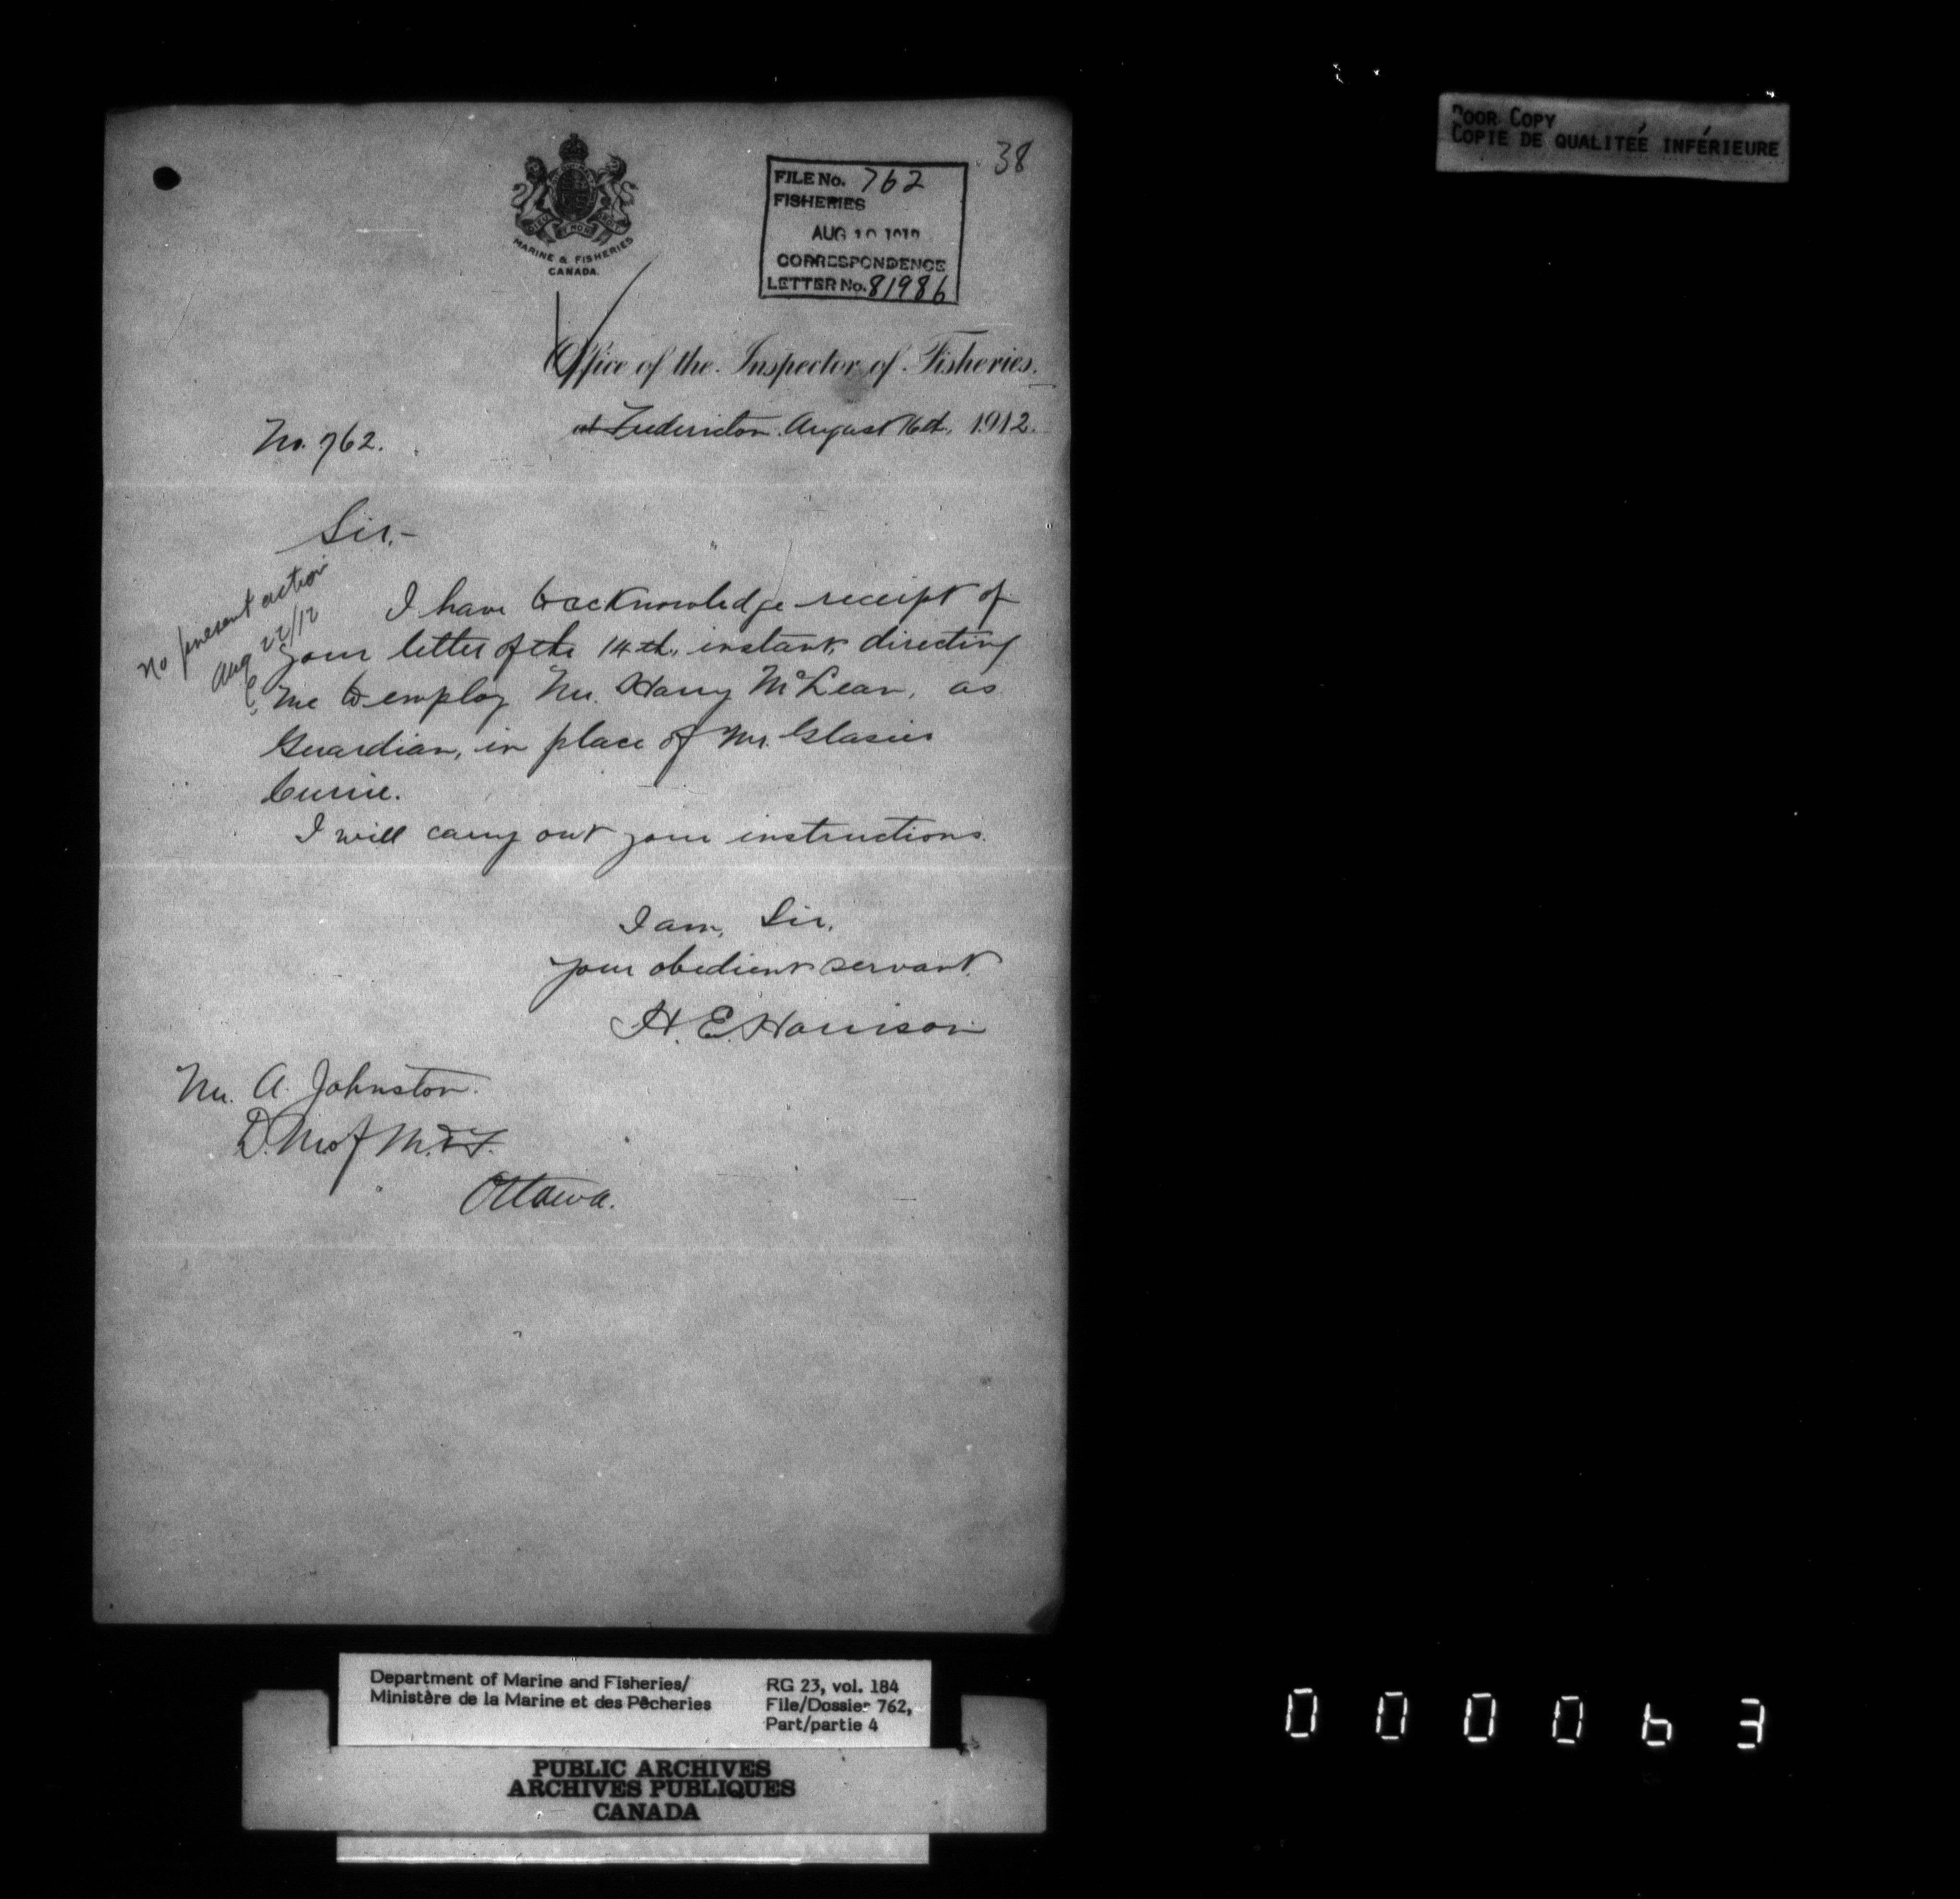 POOR COPY
COPIE DE QUALITEÉ INFÉRIEURE
38
FILE No. 762
FISHERIES
AUG 19 1912
CORRESPONDENCE
LETTER No. 81986
DIEU ET MON DROIT
MARINE & FISHERIES
CANADA.
Office of the Inspector of Fisheries.
at Fredericton August 16th, 1912.
No. 762.
Sir,-
No present action
Aug 22/12
I have to acknowledge receipt of
your letter of the 14th, instant, directing
me to employ Mr. Harry McLean, as
Guardian, in place of Mr. Glasier
Currie.
I will carry out your instructions.
I am, Sir,
your obedient servant,
H. E. Harrison
Mr. A. Johnston.
D. M. of M. & F.
Ottawa.
Department of Marine and Fisheries/
Ministère de la Marine et des Pêcheries
RG 23, vol. 184
File/Dossier 762,
Part/partie 4
PUBLIC ARCHIVES
ARCHIVES PUBLIQUES
CANADA
000063